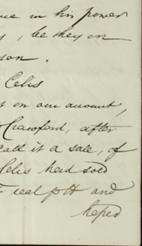 in his power
, be they on
son.
Celis
on our account,
Crawford, after
call it a sale, of
Celis had sold
real ptt and